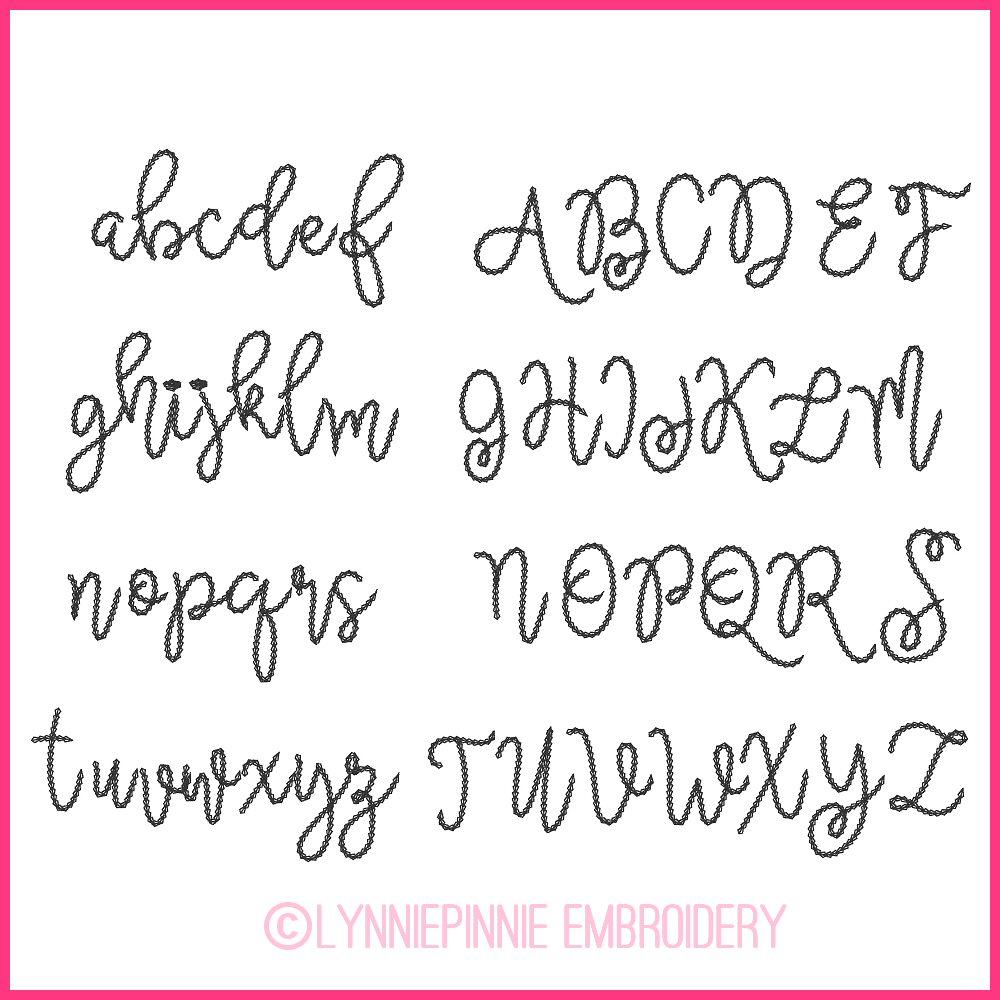 abcdef ABCDEF
ghijklm GHIJKLM
nopqrs NOPQRS
tuvwxyz TUVWXYZ
©LYNNIEPINNIE EMBROIDERY